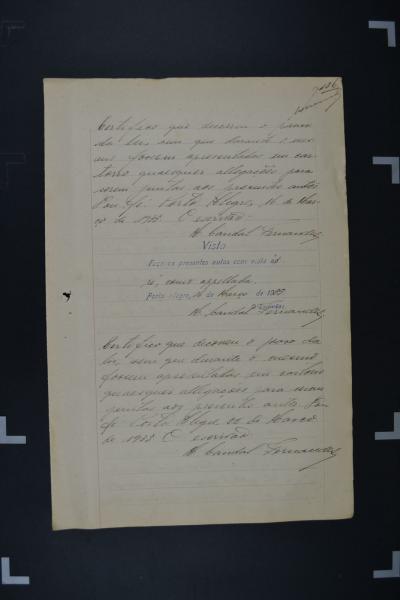 Certifico que decorreu o prazo
da lei sem que durante o mes-
mo fossem apresentadas em car-
torio quaesquer allegações para
serem juntas aos presentes autos
Dou fé. Porto Alegre, 16 de Mar-
ço de 1935. O escrivão
H. Candal Fernandes
Vista
Faço os presentes autos com vista á
ré, como appellada.
Porto Alegre, 16 de Março de 193
O Escrivão,
H. Candal Fernandes
Certifico que decorreu o prazo da
lei, sem que durante o mesmo
fossem apresentadas em cartorio
quaesquer allegações para serem
juntas aos presentes autos. Dou
fé. Porto Alegre 22 de Março
de 1935 O escrivão
H. Candal Fernandes